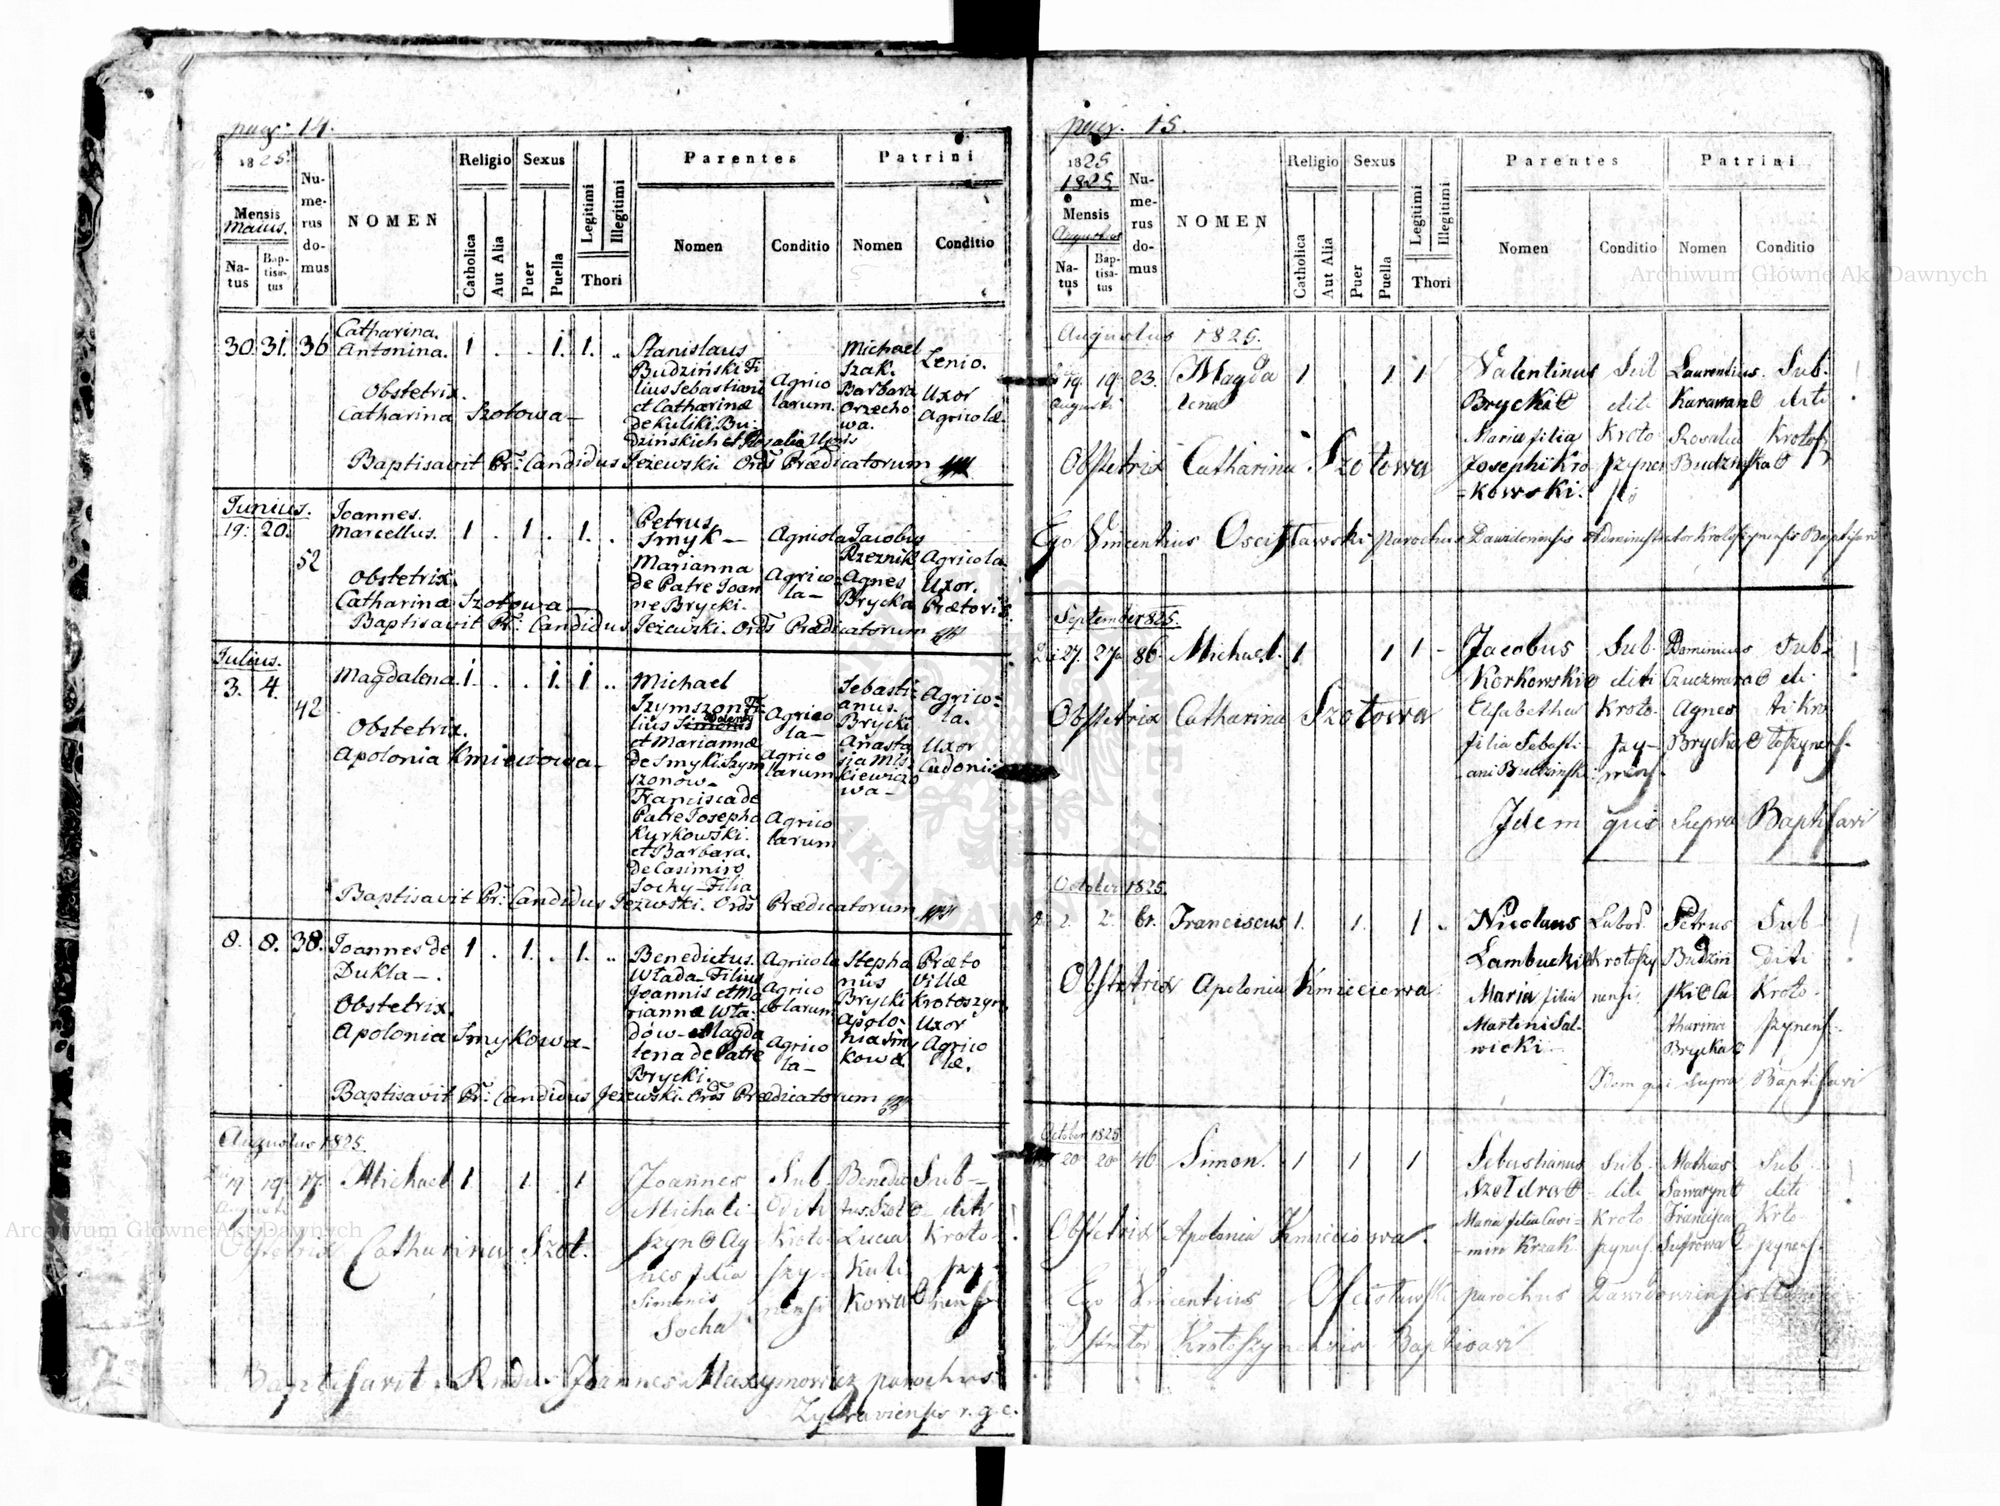 pag. 14.
1825.
Mensis
Maius.
Natus
Baptisatus
Numerus domus
NOMEN
Religio
Catholica
Aut Alia
Sexus
Puer
Puella
Legitimi
Illegitimi
Thori
Parentes
Nomen
Conditio
Patrini
Nomen
Conditio
30. 31. 36
Catharina.
Antonina. 1 . . 1. 1. ..
Obstetrix.
Catharina Szotowa
Stanislaus
Budziński Fi
lius Sebastiani
et Catharinæ
de Kuliki Bu-
dzińskich et Rosalia
Agrico
larum.
Michael
Szak.
Barbara
Orzecho
wa.
Lenio.
Uxor
Agricolæ.
Baptisavit Pr: Candidus Jeżewski Ords Prædicatorum
Junius.
19. 20. 52
Joannes.
Marcellus. 1 . 1 . 1. .
Obstetrix.
Catharina Szotowa
Petrus
Smyk
Marianna
de Patre Joan
ne Brycki.
Agricola
Agrico-
la
Jacobus
Rzeznik
Agnes
Brycka
Agricola
Uxor.
Prætoris.
Baptisavit Pr. Candidus Jeżewski. Ords Prædicatorum
Julius.
3. 4. 42
Magdalena. 1. . . 1. 1 ..
Obstetrix.
Apolonia Kmieciowa
Michael
Szymszon Fi
lius
et Mariannæ
de Smyki Szym
szonów
Francisca de
Patre Josepho
Kurkowski.
et Barbara.
de Casimiro
Sochy Filia
Agrico
la
Agrico
larum
Agrico
larum
Sebasti
anus.
Brycki
Anasta
sia Mis
kiewiczo
wa
Agrico-
la.
Uxor
Baptisavit Pr: Candidus Jeżewski. Ords Prædicatorum
8. 8. 38.
Joannes de
Dukla 1 . 1. . 1. ..
Obstetrix.
Apolonia Smykowa
Benedictus.
Włada Filius
Joannis et Ma
riannæ Wła
dów Magda
lena de Patre
Brycki.
Agricola
Agrico
larum
Agrico
la
Stepha
nus
Brycki
Apolo-
nia Smy
kowa
Præto
Villæ
Krotoszyn.
Uxor
Agrico
læ.
Baptisavit Pr: Candidus Jeżewski. Ords Prædicatorum
Augustus 1825.
19 19 17
Michael 1 1 1
Obstetrix Catharina Szot.
Joannes
Michali
szyn Ag
nes filia
Simonis
Socha
Sub
diti
Kroto
szy
nensis
Benedic
tus Szot
Lucia
Kuli
kowa
Sub
diti
Kroto
szy
nens
Baptisavit Rndus Joannes Maxymowicz parochus
r.g.c.
pag. 15.
1825
1825
Mensis
Augustus
Natus
Baptisatus
Numerus domus
NOMEN
Religio
Catholica
Aut Alia
Sexus
Puer
Puella
Legitimi
Illegitimi
Thori
Parentes
Nomen
Conditio
Patrini
Nomen
Conditio
Augustus 1825.
19. 19. 23.
Magda
lena 1 1 1
Augusti
Obstetrix Catharina Szotowa
Valentinus
Brycki
Maria filia
Josephi Kro
kowski.
Sub
diti
Kroto
szynen
Laurentius.
Karawan
Rosalia
Budzinska
Sub.
diti
Krotosz
Ego Vincentius Oscislawski parochus Dawidoviensis Administrator Krotoszynensis Baptisavi
September 1825.
27. 27 86. Michael. 1 1 1 -
Obstetrix Catharina Szotowa
Jacobus
Korkowski
Elisabetha
filia Sebasti-
ani Budzinski
Sub.
diti
Kroto.
szy-
nens.
Dominicus
Czuczwara
Agnes
Brycka
Sub-
di-
ti Kro
toszynens.
Idem qui Supra Baptisavi
October 1825.
2. 2. 61. Franciscus 1. 1. 1
Obstetrix Apolonia Kmieciowa
Nicolaus
Lambucki
Maria filia
Martini Sal-
wicki
Labor.
Krotoszy
nensi
Petrus
Budzin
ski Ca
tharina
Brycka
Sub
diti
Kroto-
szynens.
Idem qui Supra Baptisavi
October 1825
20 20 46. Simon. 1 1 1
Obstetrix Apolonia Kmieciowa.
Sebastianus
Szeldra
Maria filia Casi-
miri Krzak
Sub
diti
Kroto
szynens.
Mathias
Sawaryn
Francisca
Sub
diti
Krto
szynens.
Ego Vincentius Oscislawski parochus Dawidowiensis Admini
strator Krotoszynensis Baptisavi
Archiwum Główne Akt Dawnych
Archiwum Główne Akt Dawnych